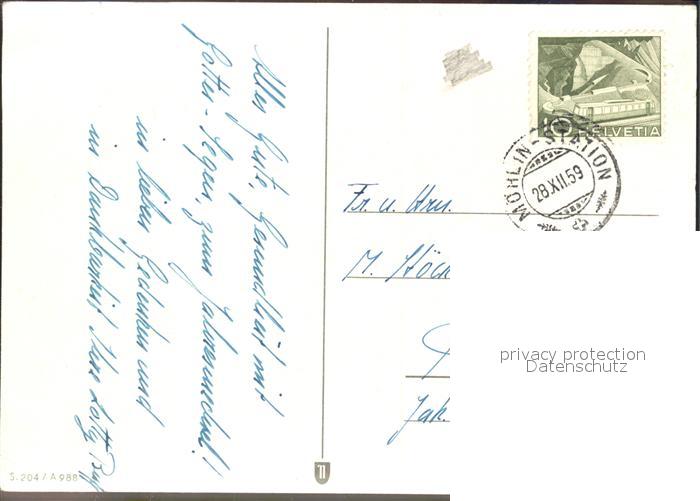 Alles Gute, Gesundheit mit
Gottes-Segen, zum Jahreswechsel!
in lieben Gedenken und
in Dankbarkeit Lotty
S. 204 / A 988
10 HELVETIA
MÖHLIN-STATION
28.XII.59
Fr. u. Hrn.
M. Stöc
Jak.
privacy protection
Datenschutz